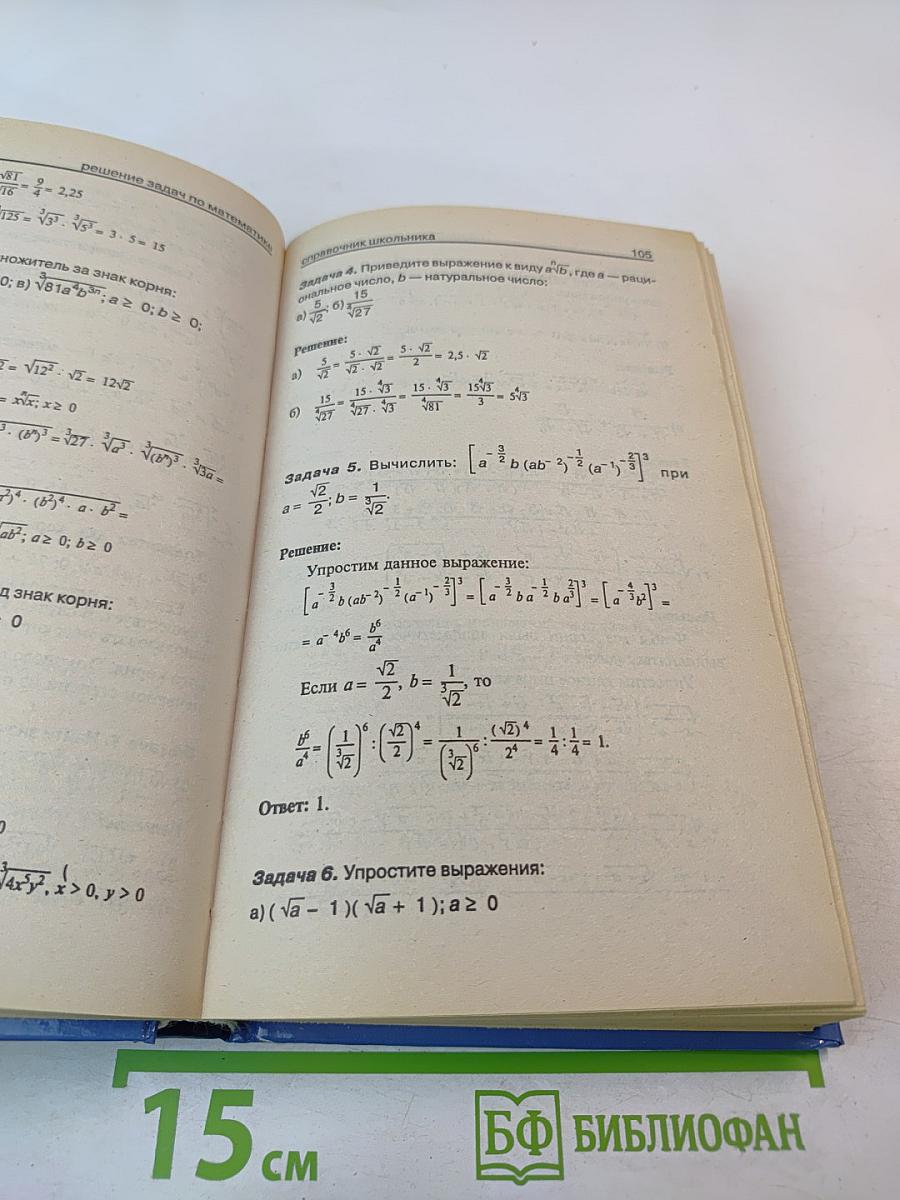 решение задач по математике
√81/√16 = 9/4 = 2,25
√125 = ∛3³ · ∛5³ = 3 · 5 = 15
ножитель за знак корня:
0; в) ∛81a⁴b³ⁿ; a ≥ 0; b ≥ 0;
= √12² · √2 = 12√2
= xⁿ√x; x ≥ 0
³ · (bⁿ)³ = ∛27 · ∛a³ · ∛(bⁿ)³ · ∛3a =
²)⁴ · (b²)⁴ · a · b² =
ab²; a ≥ 0; b ≥ 0
д знак корня:
≥ 0
0
∛4x⁵y², x > 0, y > 0
справочник школьника 105
Задача 4. Приведите выражение к виду aⁿ√b, где a — раци-
ональное число, b — натуральное число:
а) 5/√2; б) 15/⁴√27
Решение:
а) 5/√2 = 5 · √2/√2 · √2 = 5 · √2/2 = 2,5 · √2
б) 15/⁴√27 = 15 · ⁴√3/⁴√27 · ⁴√3 = 15 · ⁴√3/⁴√81 = 15⁴√3/3 = 5⁴√3
Задача 5. Вычислить: [a^(-3/2) b (ab^(-2))^(-1/2) (a^(-1))^(-2/3)]³ при
a = √2/2; b = 1/∛2.
Решение:
Упростим данное выражение:
[a^(-3/2) b (ab^(-2))^(-1/2) (a^(-1))^(-2/3)]³ = [a^(-3/2) b a^(-1/2) b a^(2/3)]³ = [a^(-4/3) b²]³ =
= a⁻⁴b⁶ = b⁶/a⁴
Если a = √2/2, b = 1/∛2, то
b⁶/a⁴ = (1/∛2)⁶ : (√2/2)⁴ = 1/(∛2)⁶ : (√2)⁴/2⁴ = 1/4 : 1/4 = 1.
Ответ: 1.
Задача 6. Упростите выражения:
а) (√a − 1)(√a + 1); a ≥ 0
15 см
БФ БИБЛИОФАН